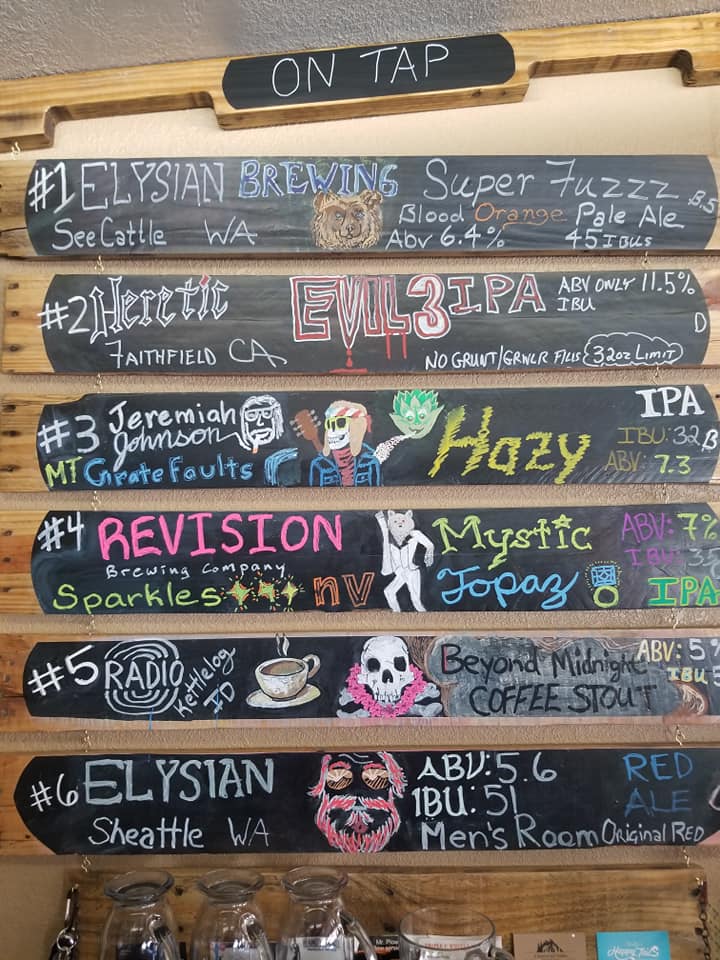 ON TAP
#1 ELYSIAN BREWING Super Fuzzz B,5
Blood Orange Pale Ale
SeeCattle WA Abv 6.4% 45 IBUs
#2 Heretic EVIL 3 IPA ABV ONLY 11.5%
IBU
D
FAITHFIELD CA NO GRUNT/GRWLR FILLS 32oz LIMIT
#3 Jeremiah Johnson Hazy IPA
IBU: 32 B
MT Grate Faults ABV: 7.3
#4 REVISION Mystic ABV: 7%
Brewing Company
Sparkles nv Topaz IPA
#5 RADIO Kettlelog ID Beyond Midnight ABV: 5
COFFEE STOUT IBU
#6 ELYSIAN ABV: 5.6 RED
IBU: 51 ALE
Sheattle WA Men's Room Original RED
Mr. Plow
Happy Tails